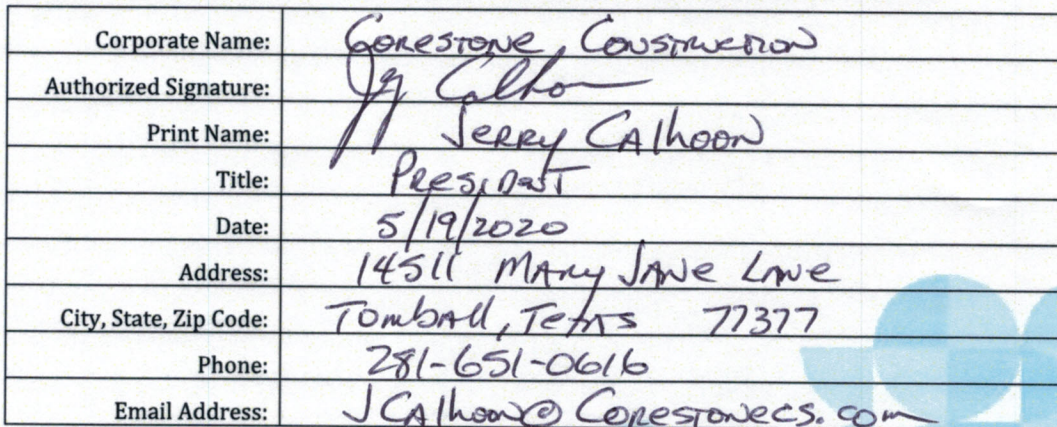 Corporate Name: Corestone Construction
Authorized Signature: Jy Calhoon
Print Name: Jerry Calhoon
Title: President
Date: 5/19/2020
Address: 14511 Mary Jane Lane
City, State, Zip Code: Tomball, Texas 77377
Phone: 281-651-0616
Email Address: JCalhoon@Corestonecs.com